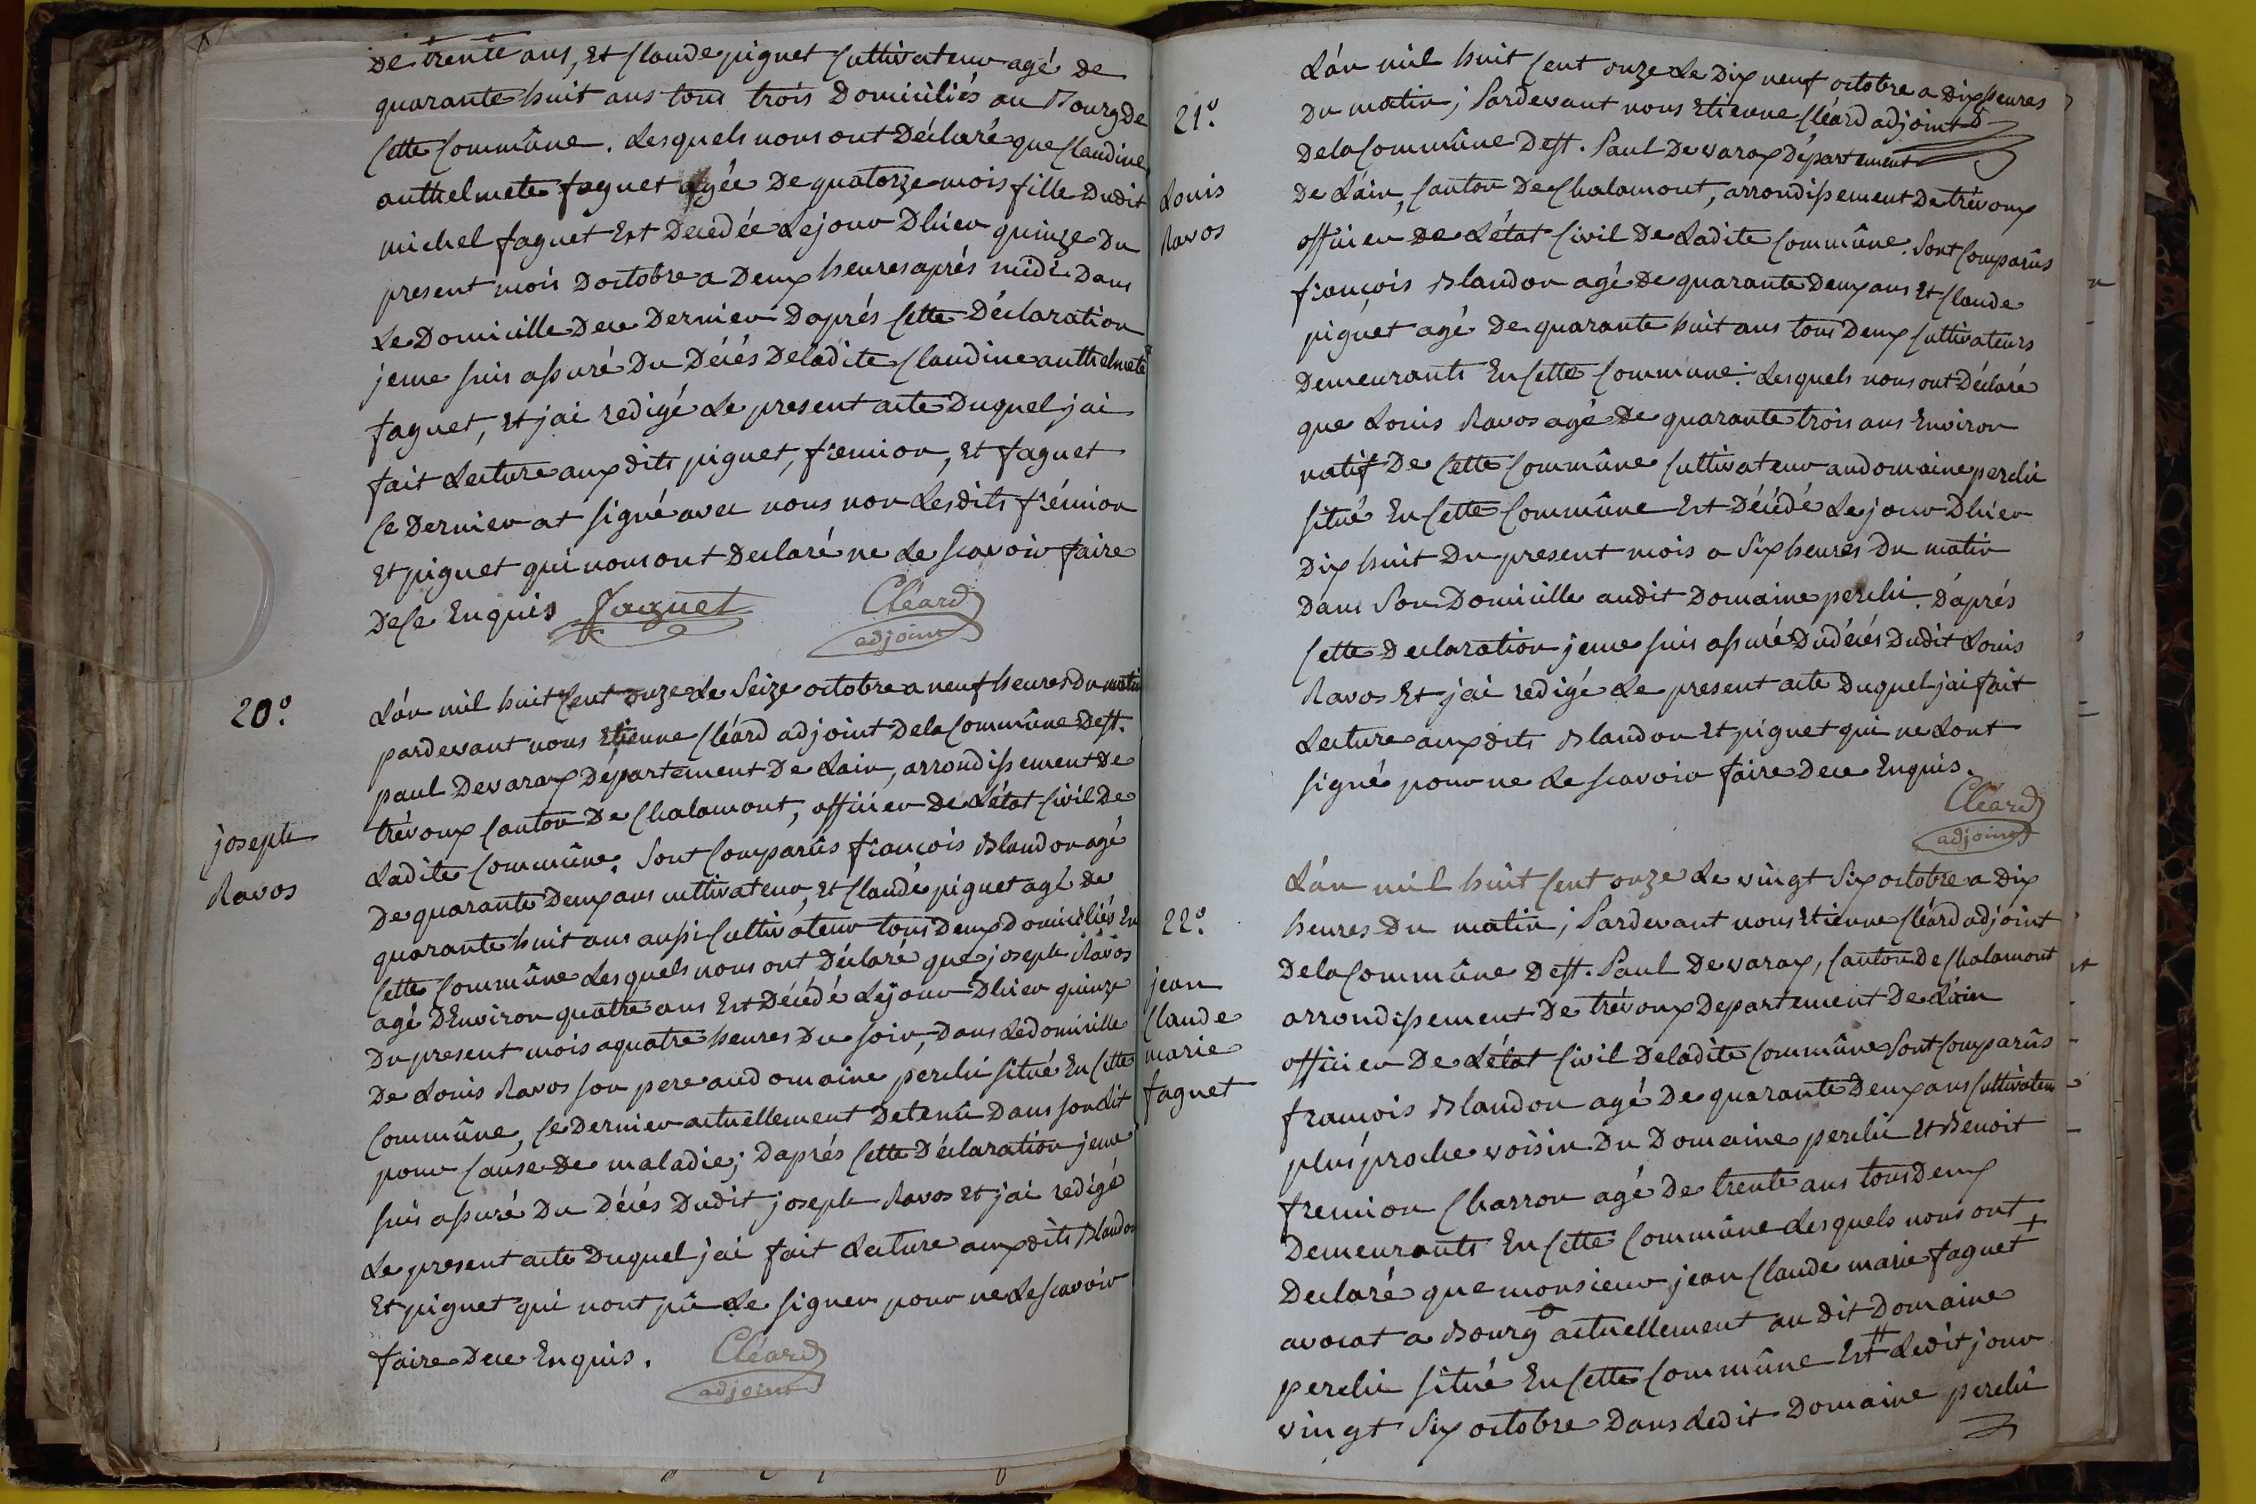 De trente ans, Et Claude piguet Cultivateur agé de
quarante huit ans tous trois Domiciliés au Bourg de
Cette Commûne. Lesquels nous ont Déclaré que Claudine
anthelmete faguet agée De quatorze mois fille Dudit
michel faguet Est Decedée Le jour Dhier quinze Du
present mois Doctobre a Deux heures aprés midi Dans
Le Domicille De ce Dernier Daprés Cette Déclaration
je me suis assuré Du Décés De ladite Claudine anthelmete
faguet, Et jai redigé Le present acte Duquel jai
fait Lecture aux dits piguet, frémion, Et faguet
Ce Dernier at signé avec nous non Les dits frémion
Et piguet qui nous ont Declaré ne Le scavoir faire
De Ce Enquis Faguet Cléard
adjoint
20°.
L'an mil huit Cent onze Le Seize octobre a neuf heures Du matin
pardevant nous Etienne Cléard adjoint De la Commûne De st.
paul De varax Département De Lain, arrondissement De
trévoux Canton De Chalamont, officier De L'état Civil De
joseph
Ravos
Ladite Commûne. Sont Comparûs françois Blandon agé
De quarante Deux ans cultivateur, Et Claude piguet agé de
quarante huit ans aussi Cultivateur tous Deux Domiciliés En
Cette Commûne Lesquels nous ont Déclaré que joseph Ravos
agé D'Environ quatre ans Est Décédé Le jour Dhier quinze
Du present mois a quatre heures Du soir, Dans Le domicille
De Louis Ravos son pere au domaine perchi situé En Cette
Commûne, Ce Dernier actuellement Detenû Dans son Lit
pour Cause De maladie; Daprés Cette Déclaration je me
suis assuré Du Décés Dudit joseph Ravos Et jai redigé
Le present acte Duquel jai fait Lecture aux dits Blandon
Et piguet qui nont pû Le signer pour ne Le scavoir
faire De ce Enquis. Cléard
adjoint
21°.
Louis
Ravos
L'an mil huit Cent onze Le Dix neuf octobre a Dix heures
Du matin; Pardevant nous Etienne Cléard adjoint
De la Commûne De st. Paul De varax Département
De L'ain, Canton De Chalamont, arrondissement De trévoux
officier De L'état Civil De Ladite Commûne. Sont Comparûs
françois Blandon agé De quarante Deux ans Et Claude
piguet agé De quarante huit ans tous Deux Cultivateurs
Demeurants En Cette Commune. Lesquels nous ont Déclaré
que Louis Ravos agé De quarante trois ans Environ
natif De Cette Commûne Cultivateur au domaine perchi
situé En Cette Commûne Est Décédé Le jour Dhier
Dix huit Du present mois a Six heures Du matin
Dans Son Domicille audit Domaine perchi. D'aprés
Cette Declaration je me suis assuré Du décés Dudit Louis
Ravos Et jai redigé Le present acte Duquel jai fait
Lecture aux dits Blandon Et piguet qui ne Lont
signé pour ne Le scavoir faire De ce Enquis.
Cléard
adjoint
22°.
jean
Claude
marie
faguet
L'an mil huit Cent onze Le vingt Six octobre a Dix
heures Du matin; Pardevant nous Etienne Cléard adjoint
De la Commûne De st. Paul De varax, Canton De Chalamont
arrondissement De trévoux Departement De L'ain
officier De L'état Civil De ladite Commûne Sont Comparûs
françois Blandon agé De quarante Deux ans Cultivateur
plus proche voisin Du Domaine perchi Et Benoit
fremion Charron agé De trente ans tous Deux
Demeurants En Cette Commûne Lesquels nous ont +
Declaré que monsieur jean Claude marie faguet
avocat a Bourg actuellement au dit Domaine
perchi situé En Cette Commûne Est # Ledit jour
vingt Six octobre Dans Ledit Domaine perchi